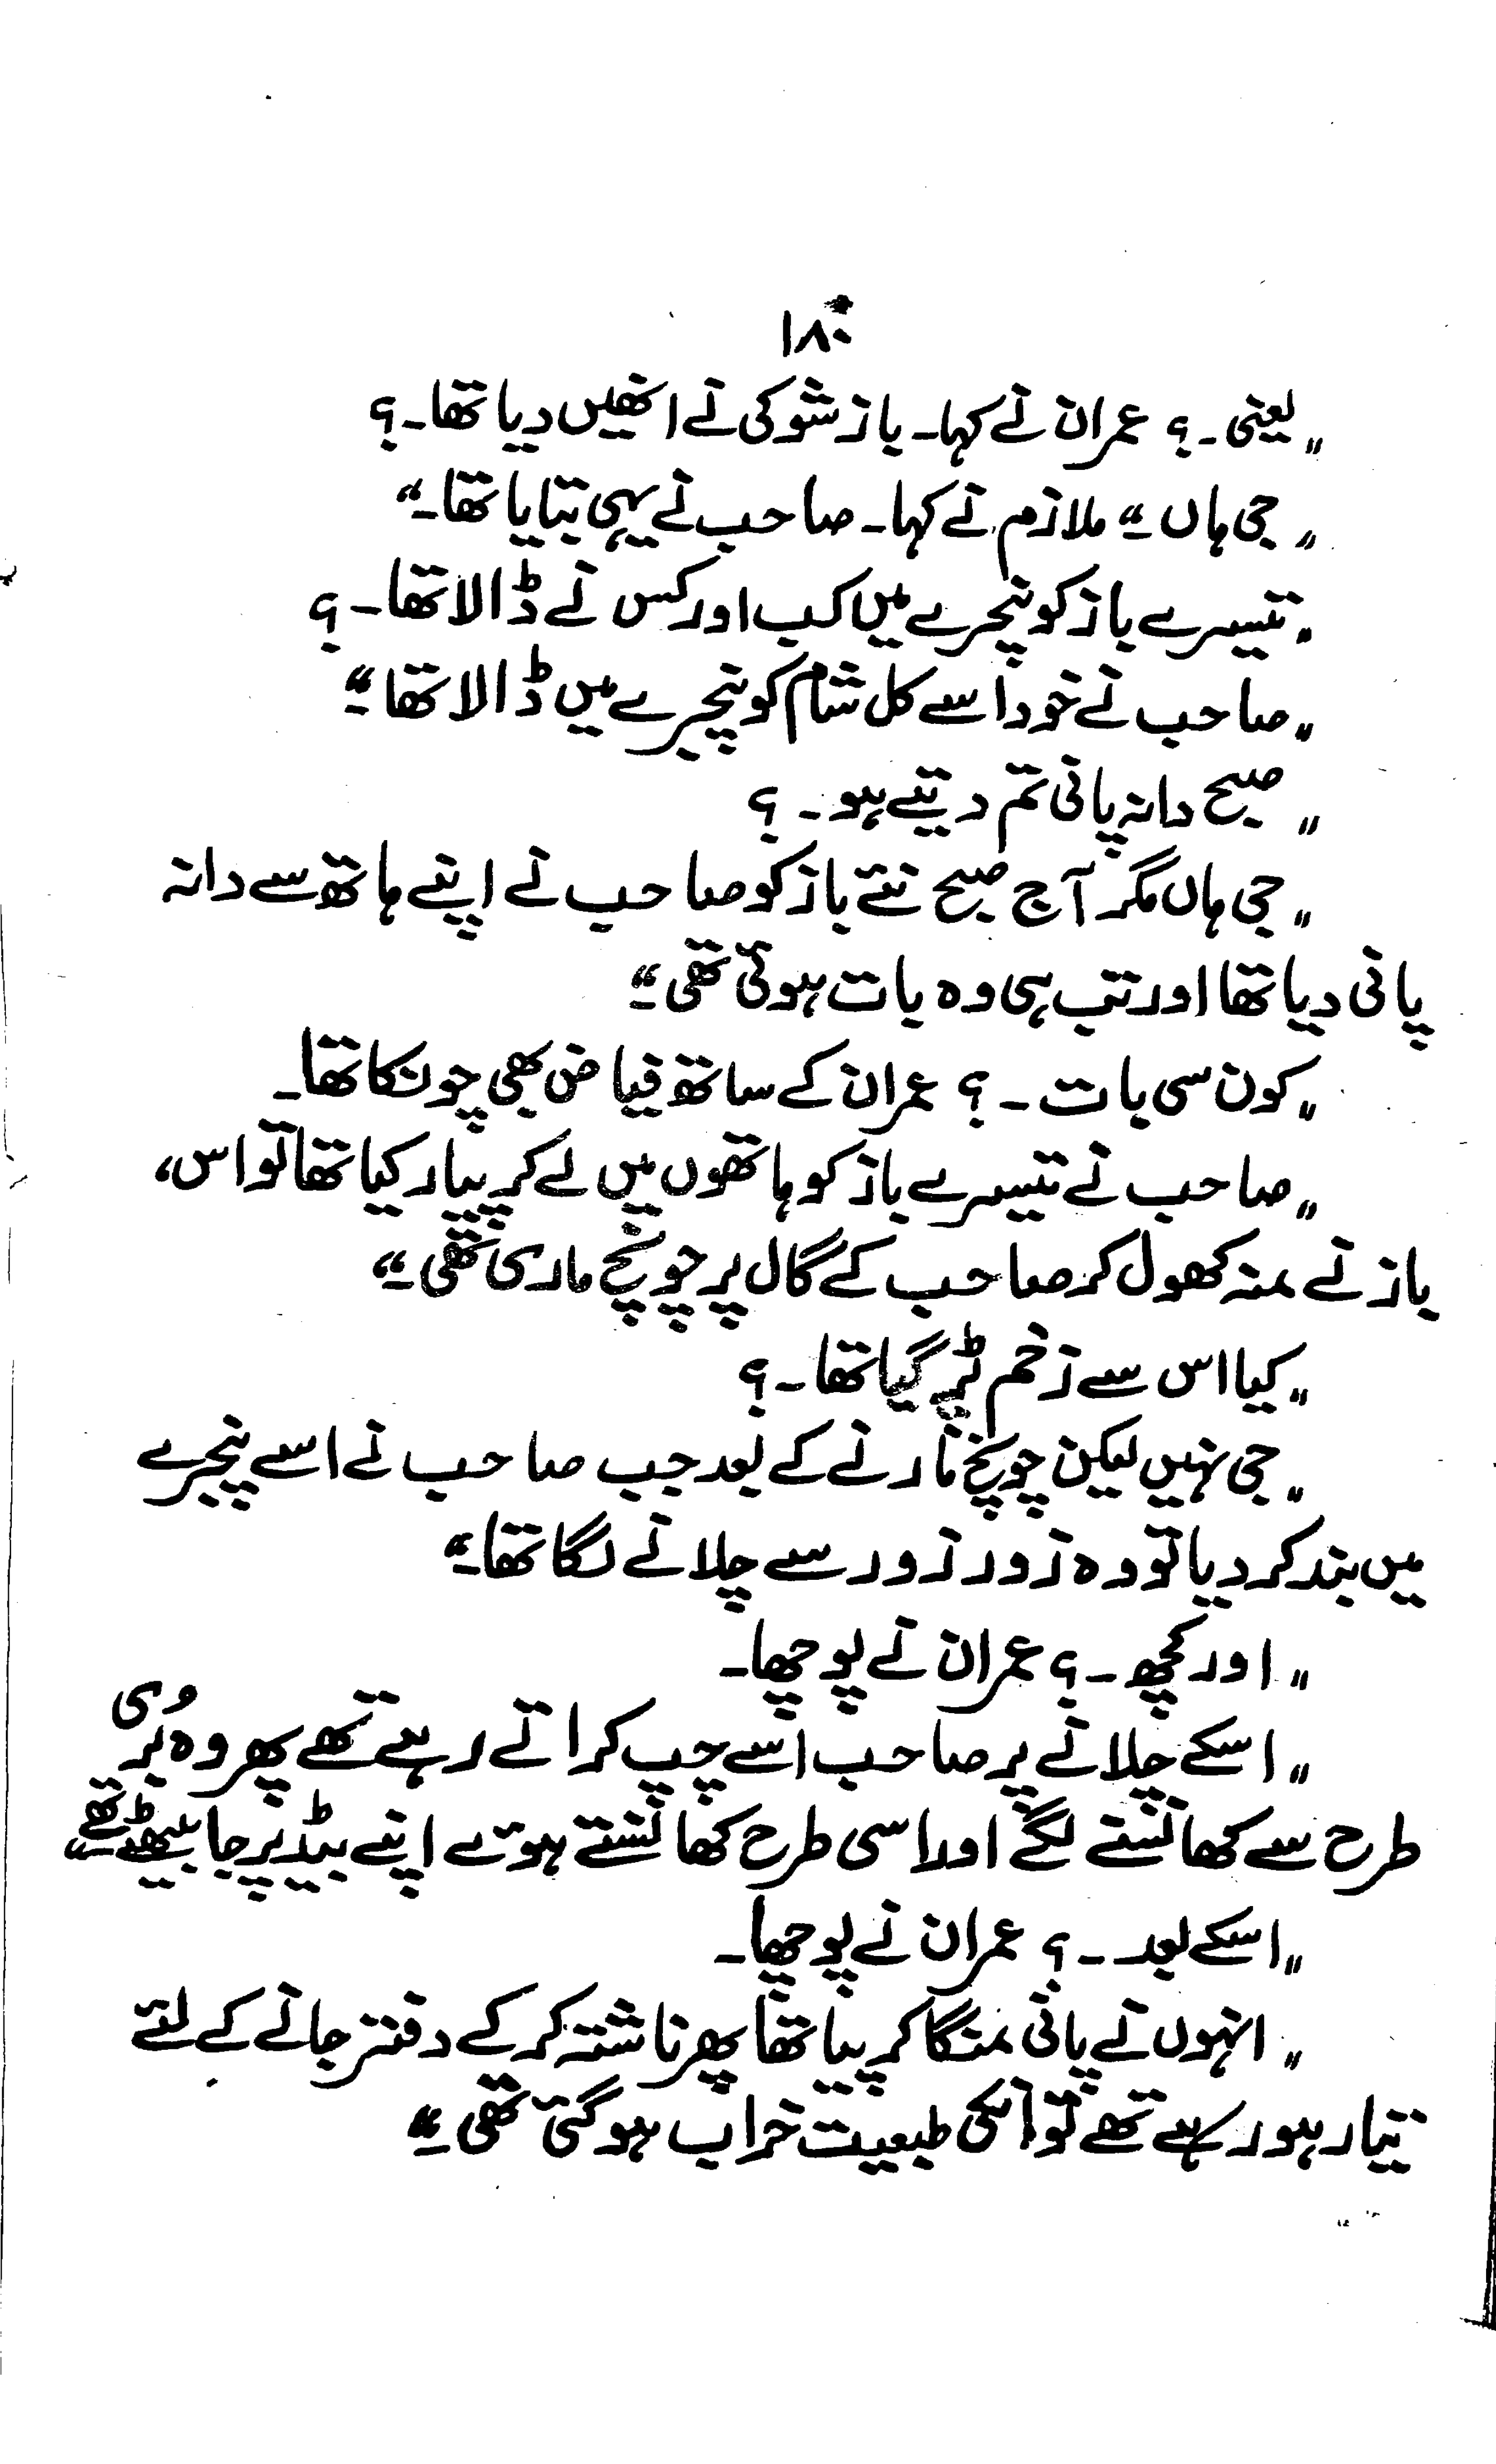 ۱۸۰
"یعنی۔؟ عمران نے کہا۔ باز شوکی نے انھیں دیا تھا۔؟
"جی ہاں"۔ ملازم نے کہا۔ صاحب نے یہی بتایا تھا۔"
"تیسرے باز کو پنجرے میں کب اور کس نے ڈالا تھا۔؟
"صاحب نے خود اسے کل شام کو پنجرے میں ڈالا تھا۔"
"صبح دانہ پانی تم دیتے ہو۔؟
"جی ہاں مگر آج صبح نئے باز کو صاحب نے اپنے ہاتھ سے دانہ
پانی دیا تھا اور تب ہی وہ بات ہوئی تھی۔"
"کون سی بات۔؟ عمران کے ساتھ فیاض بھی چونکا تھا۔
"صاحب نے تیسرے باز کو ہاتھوں میں لے کر پیار کیا تھا تو اس،
باز نے منہ کھول کر صاحب کے گال پر چونچ ماری تھی۔"
"کیا اس سے زخم پڑ گیا تھا۔؟
"جی نہیں لیکن چونچ مارنے کے بعد جب صاحب نے اسے پنجرے
میں بند کر دیا تو وہ زور زور سے چلانے لگا تھا۔"
"اور کچھ۔؟ عمران نے پوچھا۔
"اسکے چلانے پر صاحب اسے چپ کراتے رہے تھے پھر وہ بُری
طرح سے کھانسنے لگے اور اسی طرح کھانستے ہوئے اپنے بیڈ پر جا بیٹھے تھے۔"
"اسکے بعد۔؟ عمران نے پوچھا۔
"انہوں نے پانی منگا کر پیا تھا پھر ناشتہ کر کے دفتر جانے کے لئے
تیار ہو رہے تھے تو انکی طبعیت خراب ہو گئی تھی۔"